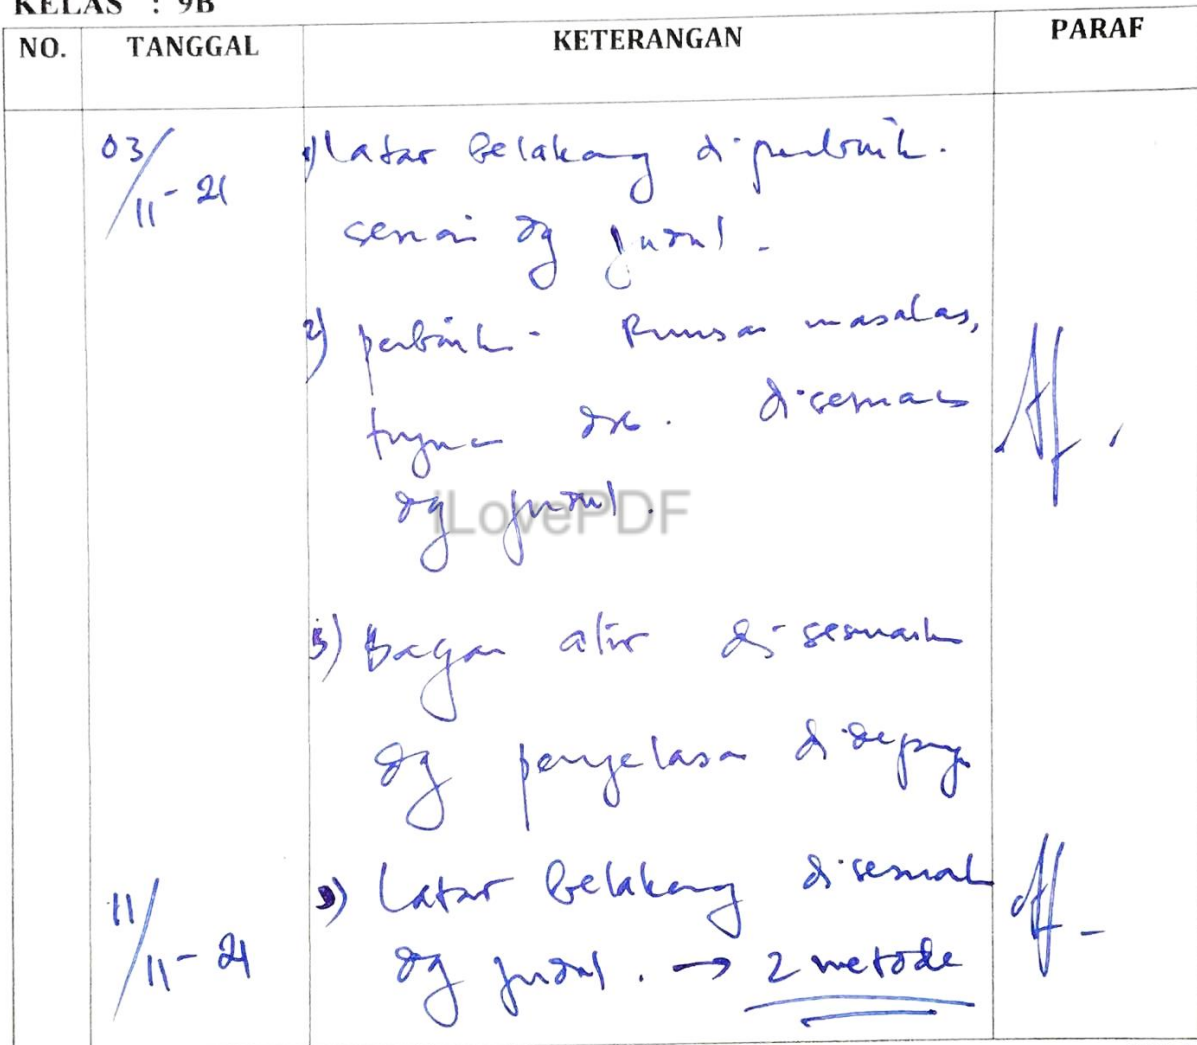 KELAS : 9B
NO. TANGGAL KETERANGAN PARAF
03/11-21 1) Latar belakang diperbaik.
sesuai dg judul.
2) perbaik - Rumusan masalah,
tujuan dll. disesuaik
dg judul.
iLovePDF
3) Bagan alir disesuaik
dg penjelasan didepnya
11/11-21 1) Latar belakang disesuaik
dg judul. → 2 metode